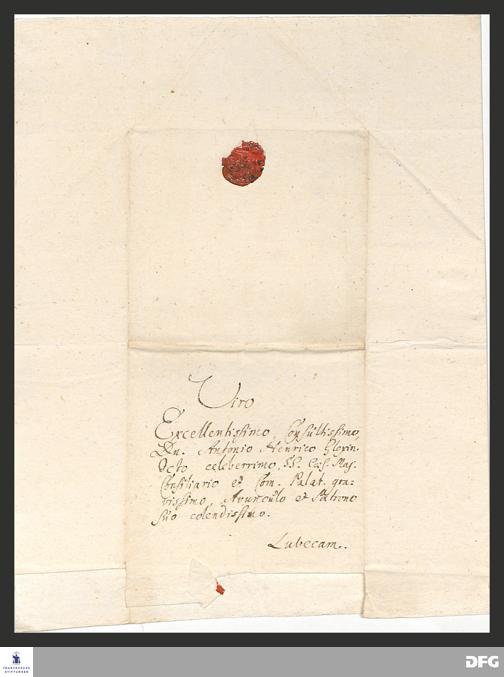 Viro
Excellentissimo, Consultissimo,
Dn. Antonio Henrico Gloxin,
Icto celeberrimo, SS. Cæs. Maj.
Consiliario et Com. Palat. gra-
vissimo, Avunculo et Patrono
suo colendissimo.
Lubecam.
FRANCKESCHE
STIFTUNGEN
DFG